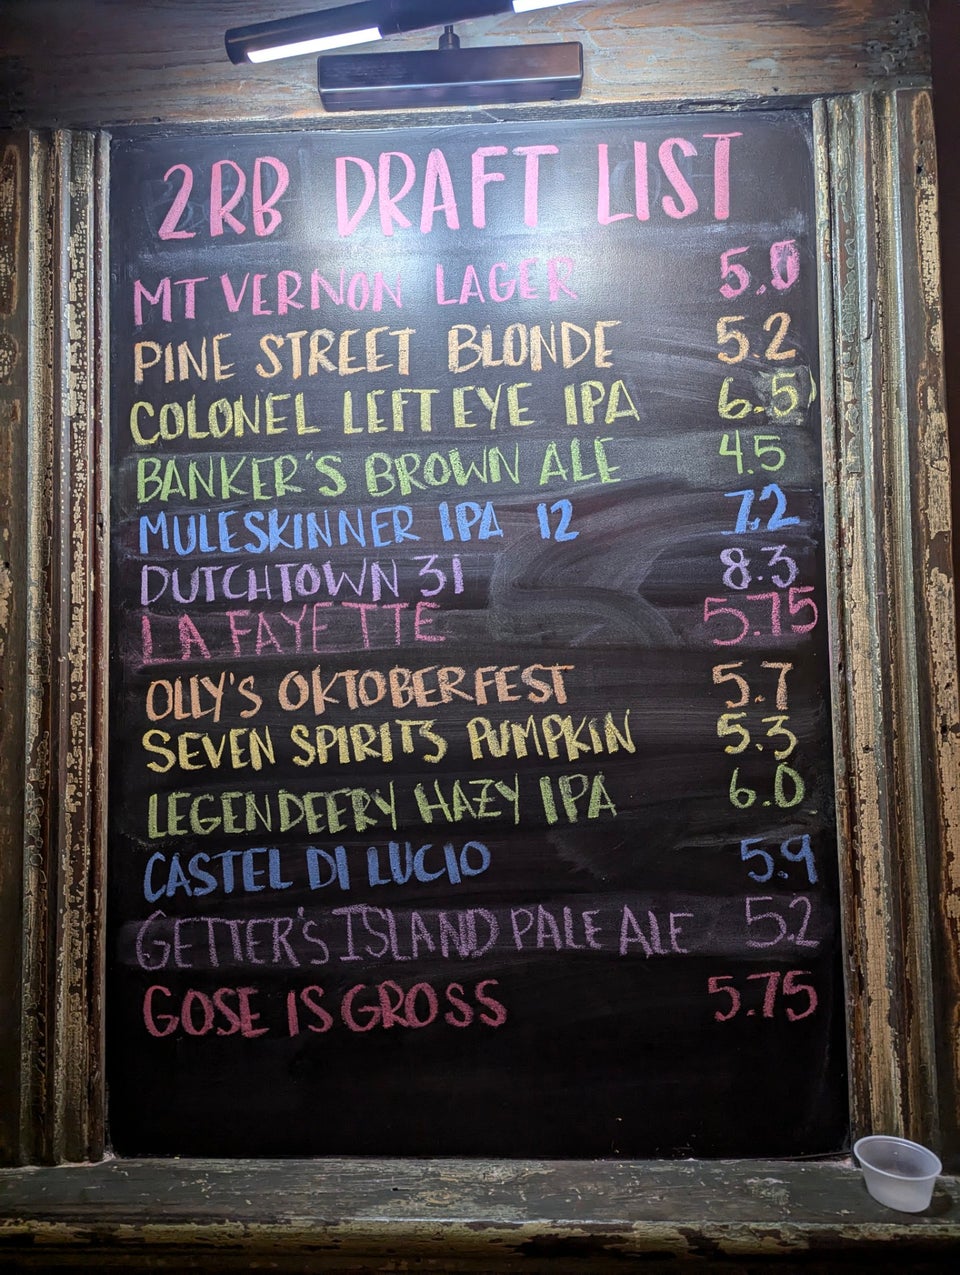 2RB DRAFT LIST
MT VERNON LAGER 5.0
PINE STREET BLONDE 5.2
COLONEL LEFT EYE IPA 6.5
BANKER'S BROWN ALE 4.5
MULESKINNER IPA 12 7.2
DUTCHTOWN 31 8.3
LA FAYETTE 5.75
OLLY'S OKTOBERFEST 5.7
SEVEN SPIRITS PUMPKIN 5.3
LEGENDEERY HAZY IPA 6.0
CASTEL DI LUCIO 5.9
GETTER'S ISLAND PALE ALE 5.2
GOSE IS GROSS 5.75